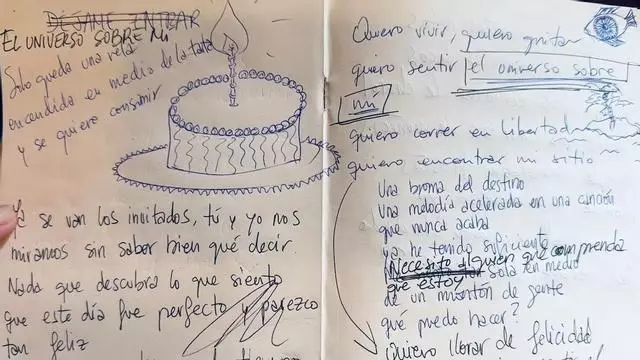 DÉJANE ENTRAR
EL UNIVERSO SOBRE MI
Solo queda una vela
encendida en medio de la tarta
y se quiere consumir
Ya se van los invitados, tú y yo nos
miramos sin saber bien qué decir.
Nada que descubra lo que siento
que este día fue perfecto y parezco
tan feliz
Quiero vivir, quiero gritar
quiero sentir el universo sobre
mí
quiero correr en libertad
quiero encontrar mi sitio
Una broma del destino
Una melodía acelerada en una canción
que nunca acaba
ya he tenido suficiente
Necesito alguien que comprenda
que estoy sola en medio
de un montón de gente
qué puedo hacer?
Quiero llorar de felicidad